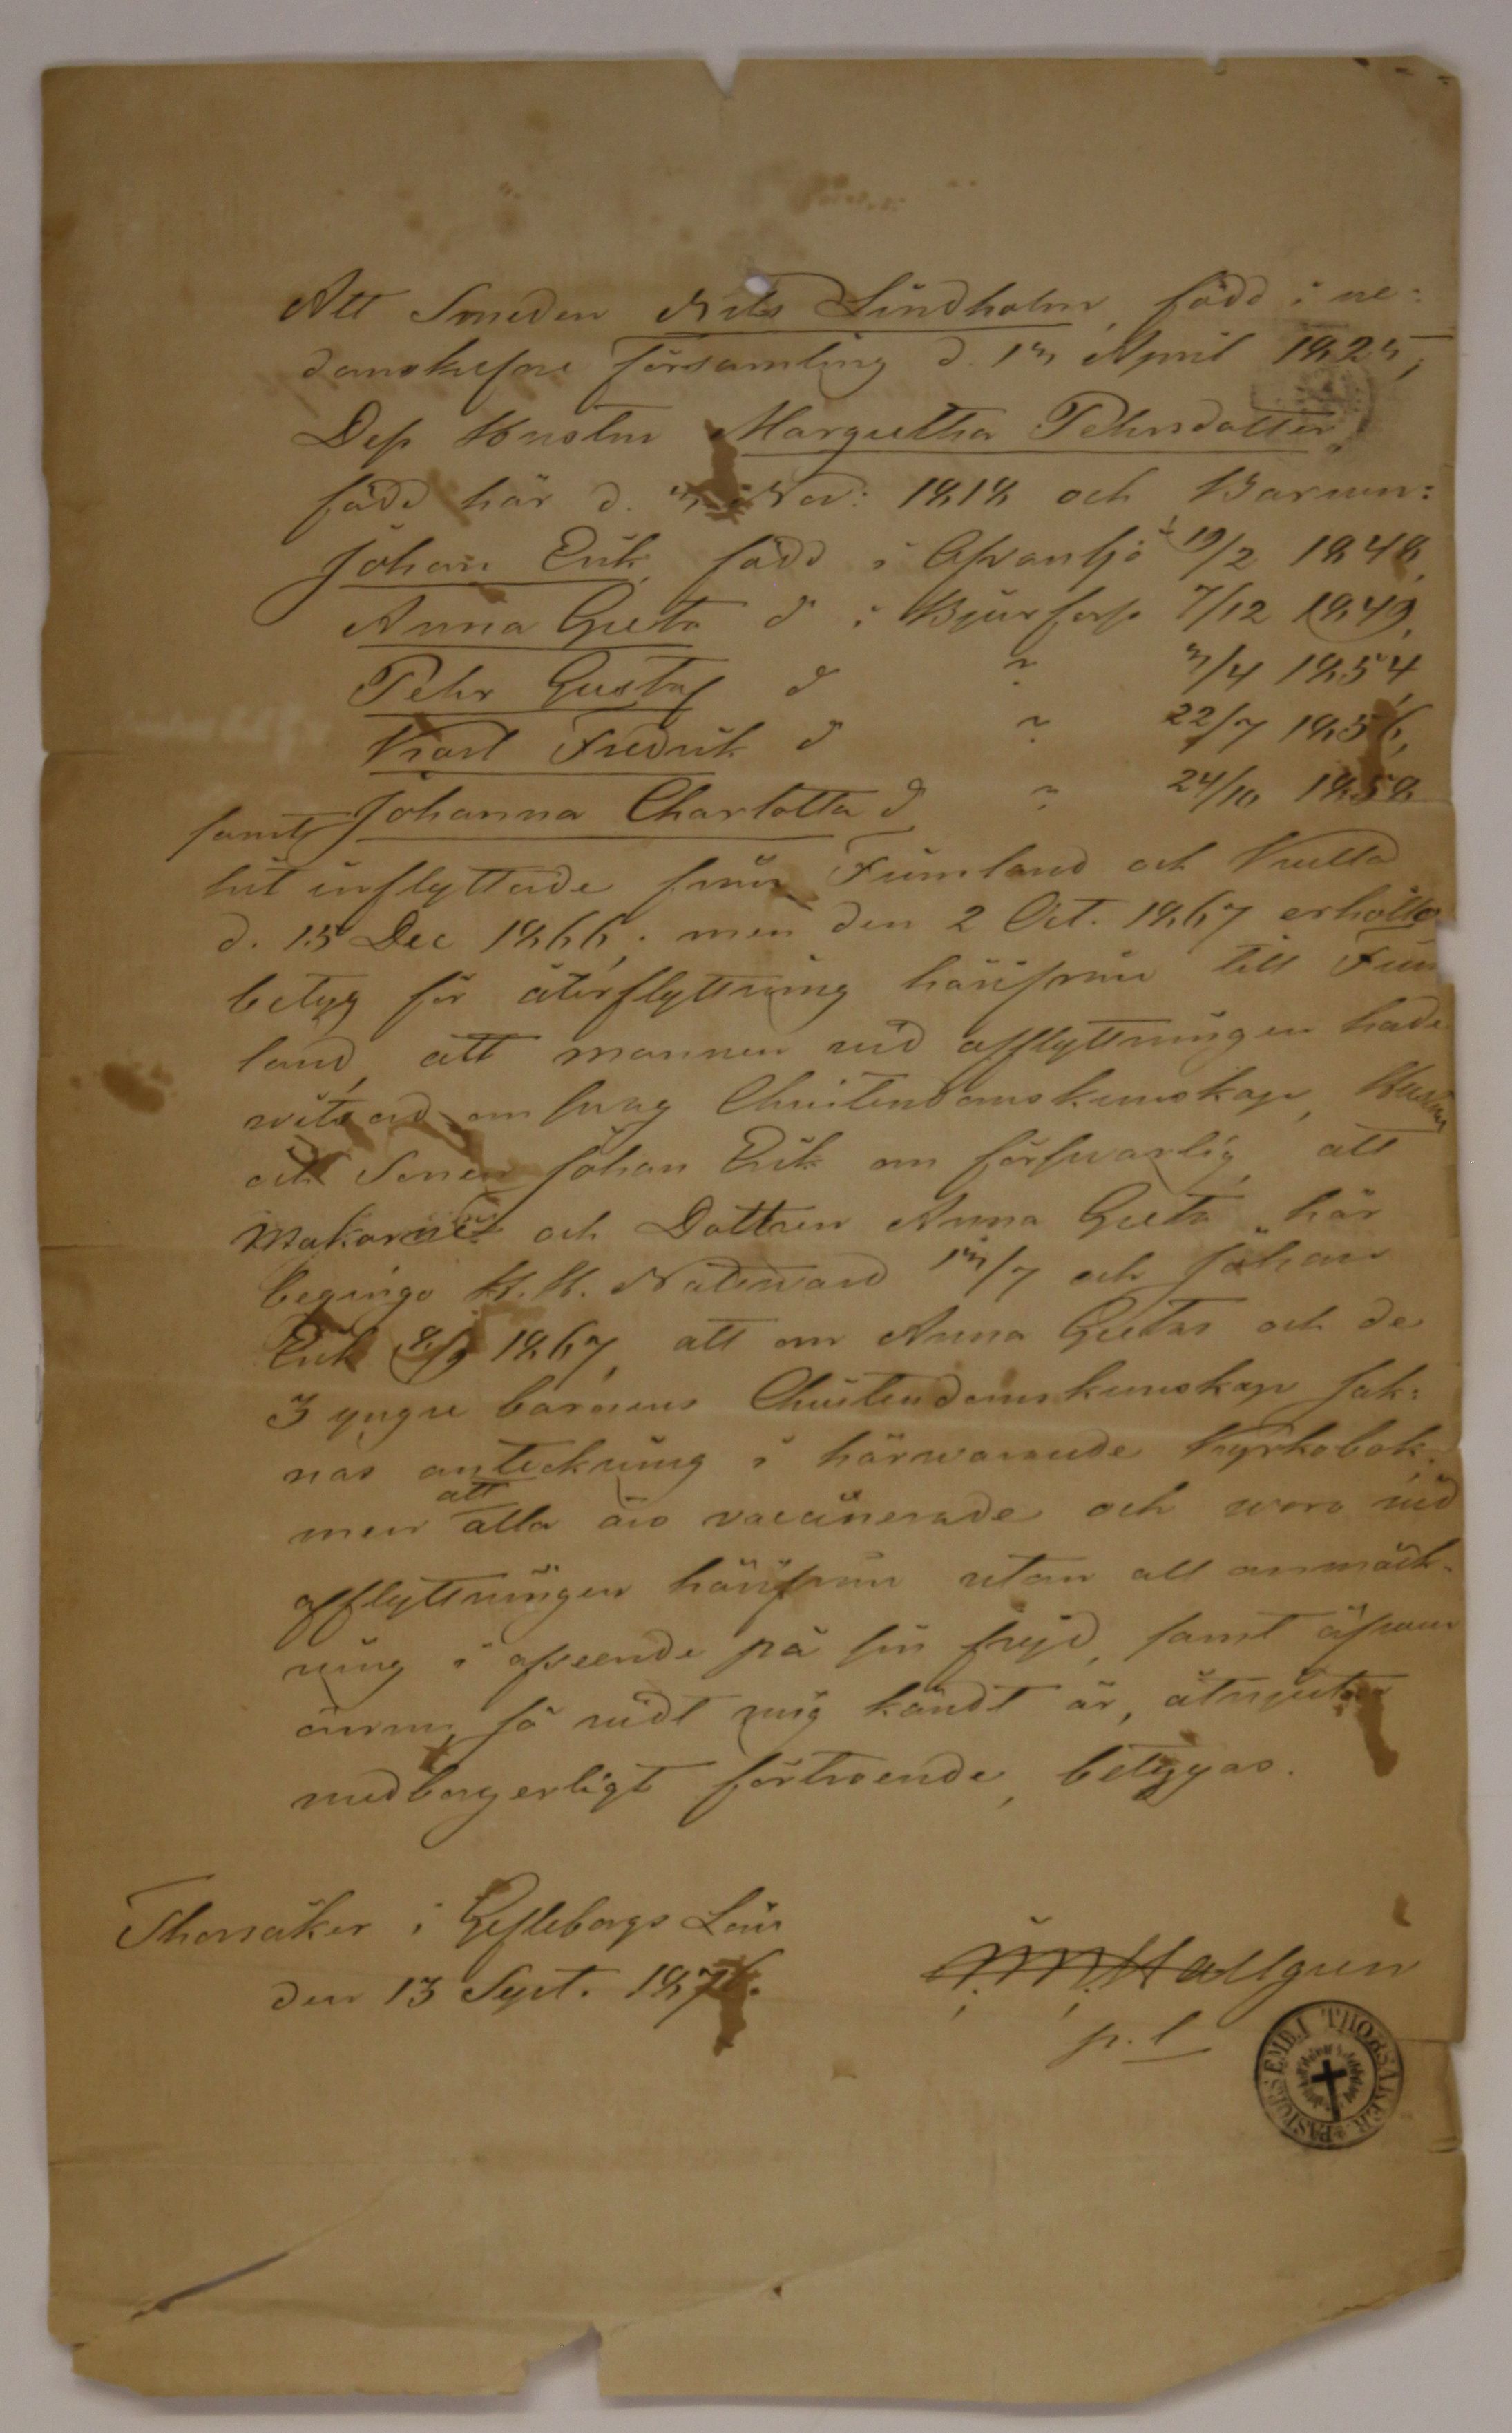 Att Smeden Nils Lindholm, född i ne-
danskrefne församling d. 13 April 1825,
Dess Hustru Margretha Pehrsdotter,
född här d. Nov: 1818 och Barnen:
Johan Erik, född i 19/2 1848,
Anna Greta d:o i Bjurfors 7/12 1849,
Pehr Gustaf d:o " 3/4 1854,
Karl Fredrik d:o " 22/7 1856,
samt Johanna Charlotta d:o " 24/10 1858
hit inflyttade från Finnland och
d. 15 Dec 1866; men den 2 Oct. 1867 erhöllo
betyg för återflyttning härifrån till Finn
land, att mannen vid afflyttningen hade
witsord om svag Christendomskunskap, Hustrun
och Sonen Johan Erik om försvarlig, att
Makarne och Dottren Anna Greta här
begingo H. H. Nattvard 13/7 och Johan
Erik 8/9 1867, att om Anna Gretas och de
3 yngre barnens Christendomskunskap sak-
nas anteckning i härwarande Kyrkobok,
men att alla äro vaccinerade och woro vid
afflyttningen härifrån utan all anmärk-
ning i afseende på sin frejd, samt äfwen
ännu, så vidt mig kändt är, åtnjuta
medborgerligt förtroende, betygas.
Thorsåker i Gefleborgs Län
den 13 Sept. 1876.
Hallgren
p. l.
PASTORSEMB. I THORSÅKER